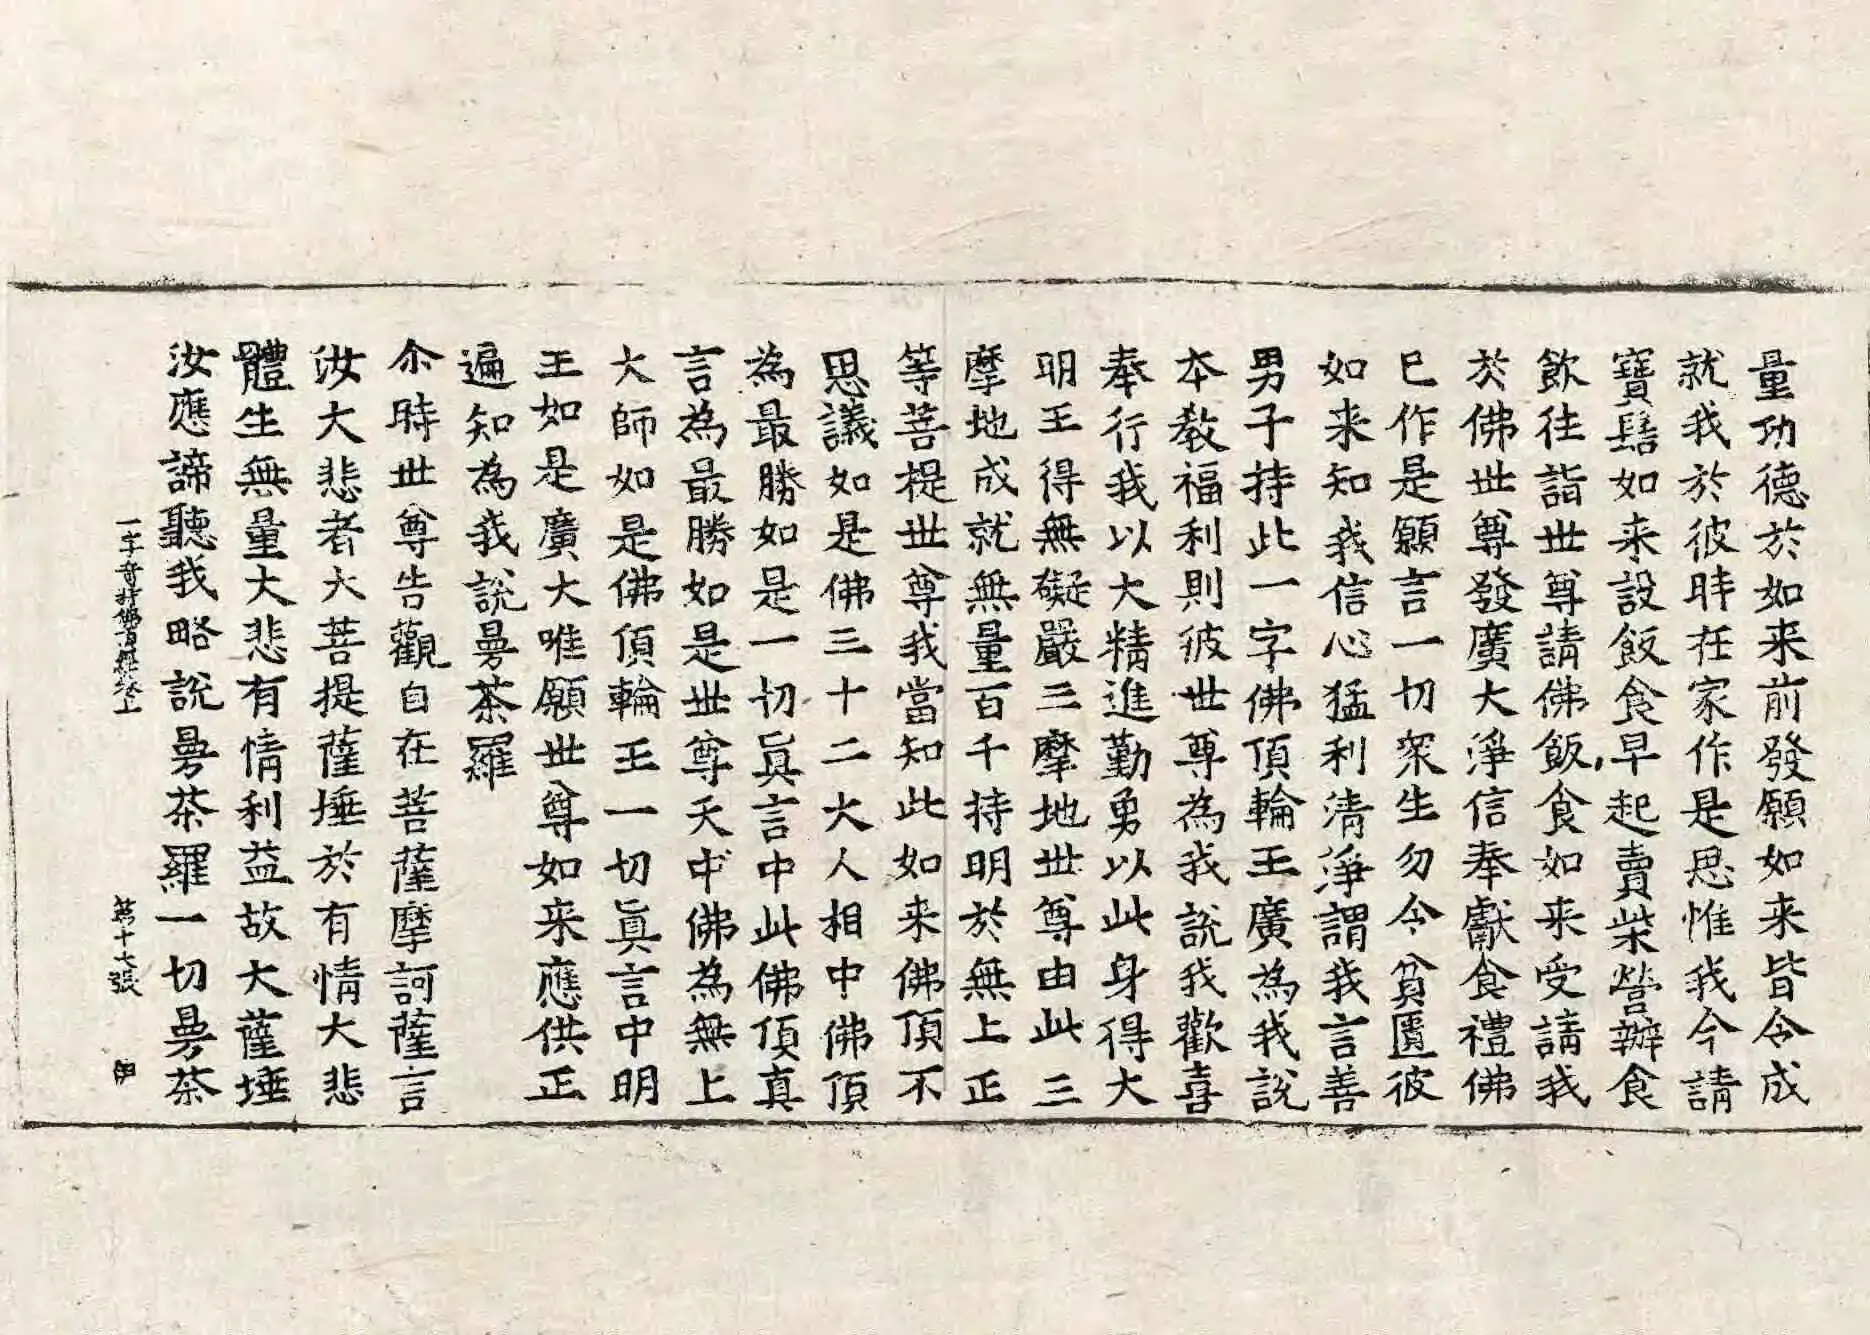 量功德於如来前發願如来皆令成
就我於彼時在家作是思惟我今請
寶髻如来設飯食早起賣柴營辦食
飲往詣世尊請佛飯食如来受請我
於佛世尊發廣大淨信奉獻食禮佛
已作是願言一切衆生勿令貧匱彼
如来知我信心猛利清淨謂我言善
男子持此一字佛頂輪王廣為我說
本教福利則彼世尊為我說我歡喜
奉行我以大精進勤勇以此身得大
明王得無礙嚴三摩地世尊由此三
摩地成就無量百千持明於無上正
等菩提世尊我當知此如来佛頂不
思議如是佛三十二大人相中佛頂
為最勝如是一切眞言中此佛頂真
言為最勝如是世尊天中佛為無上
大師如是佛頂輪王一切眞言中明
王如是廣大唯願世尊如来應供正
遍知為我說曼茶羅
尒時世尊告觀自在菩薩摩訶薩言
汝大悲者大菩提薩埵於有情大悲
體生無量大悲有情利益故大薩埵
汝應諦聽我略說曼茶羅一切曼茶
一字奇特佛頂經卷上 第十七張